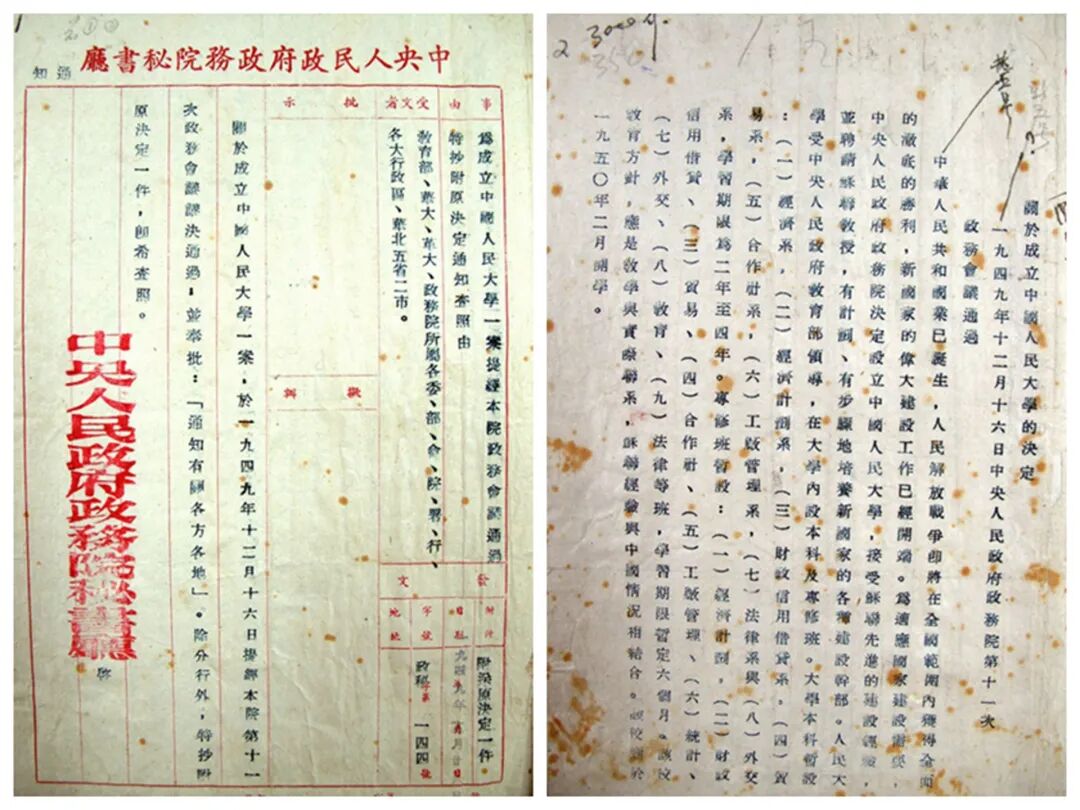 中央人民政府政務院秘書廳
通知
事由
為成立中國人民大學一案提經本院政務會議通過
特抄附原決定通知查照由
受文者
教育部、華大、革大、政務院所屬各委、部、會、院、署、行、
各大行政區、華北五省二市。
批示
擬辦
發文
附件
附決原決定一件
日期
字號
政秘字第一四四號
地址
關於成立中國人民大學一案,於一九四九年十二月十六日提經本院第十一
次政務會議議決通過,並奉批:「通知有關各方各地」。除分行外,特抄附
原決定一件,即希查照。
中央人民政府政務院秘書廳
啓
關於成立中國人民大學的決定
一九四九年十二月十六日中央人民政府政務院第十一次
政務會議通過
中華人民共和國業已誕生,人民解放戰爭即將在全國範圍內獲得全面
的澈底的勝利,新國家的偉大建設工作已經開端。為適應國家建設需要,
中央人民政府政務院決定設立中國人民大學,接受蘇聯先進的建設經驗,
並聘請蘇聯教授,有計劃、有步驟地培養新國家的各種建設幹部。人民大
學受中央人民政府教育部領導,在大學內設本科及專修班。大學本科暫設
:(一)經濟系,(二)經濟計劃系,(三)財政信用借貸系,(四)貿
易系,(五)合作社系,(六)工廠管理系,(七)法律系與(八)外交
系,學習期限為二年至四年。專修班暫設:(一)經濟計劃,(二)財政
信用借貸、(三)貿易、(四)合作社、(五)工廠管理、(六)統計、
(七)外交、(八)教育、(九)法律等班,學習期限暫定六個月。該校
教育方針,應是教學與實際聯系,蘇聯經驗與中國情況相結合。該校須於
一九五〇年二月開學。